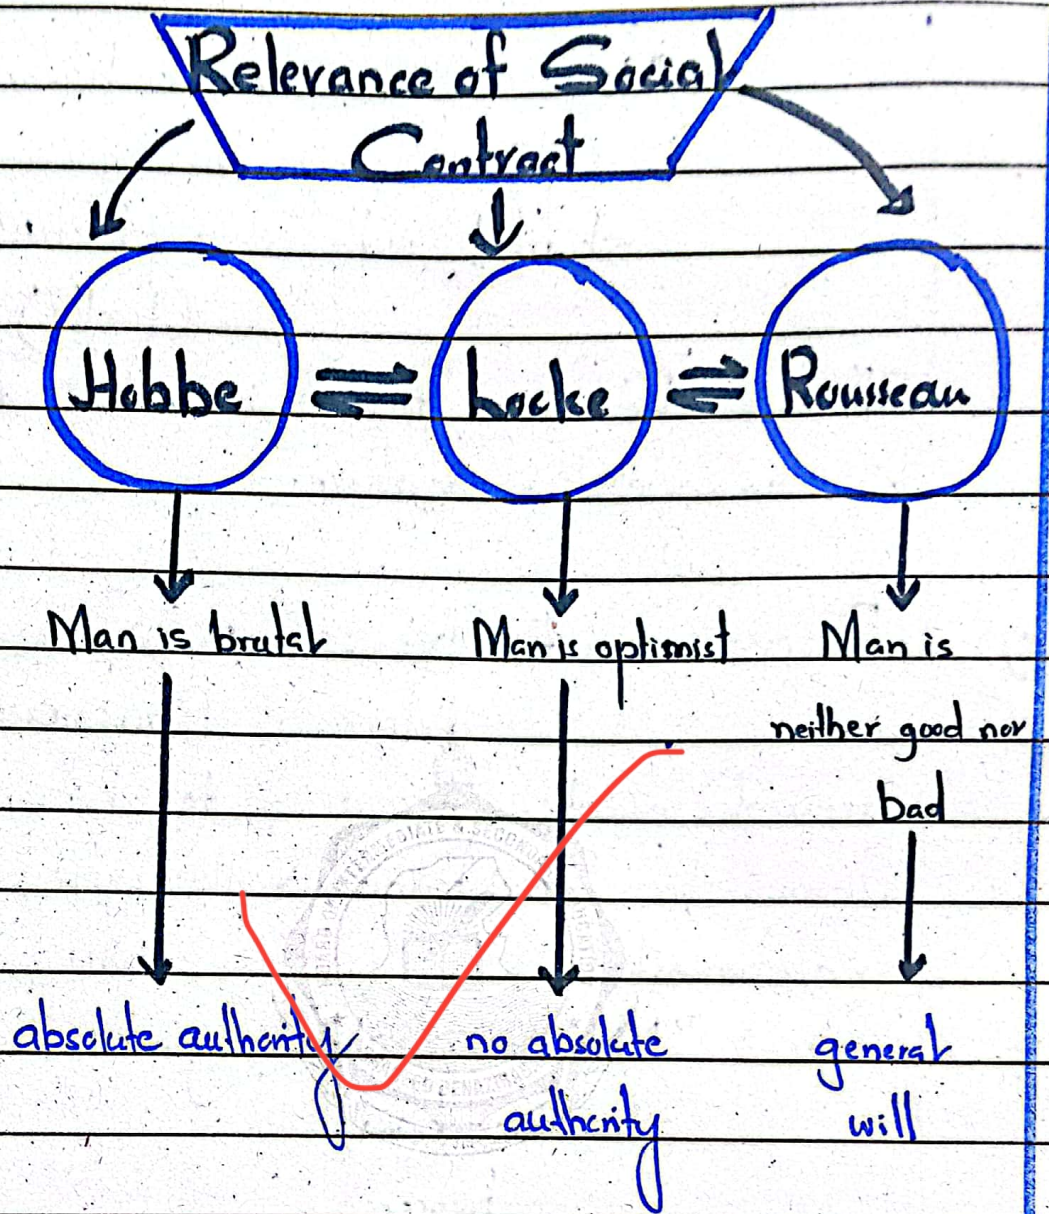 Relevance of Social
Contract
Hobbe
Locke
Rousseau
Man is brutal
Man is optimist
Man is
neither good nor
bad
absolute authority
no absolute
authority
general
will